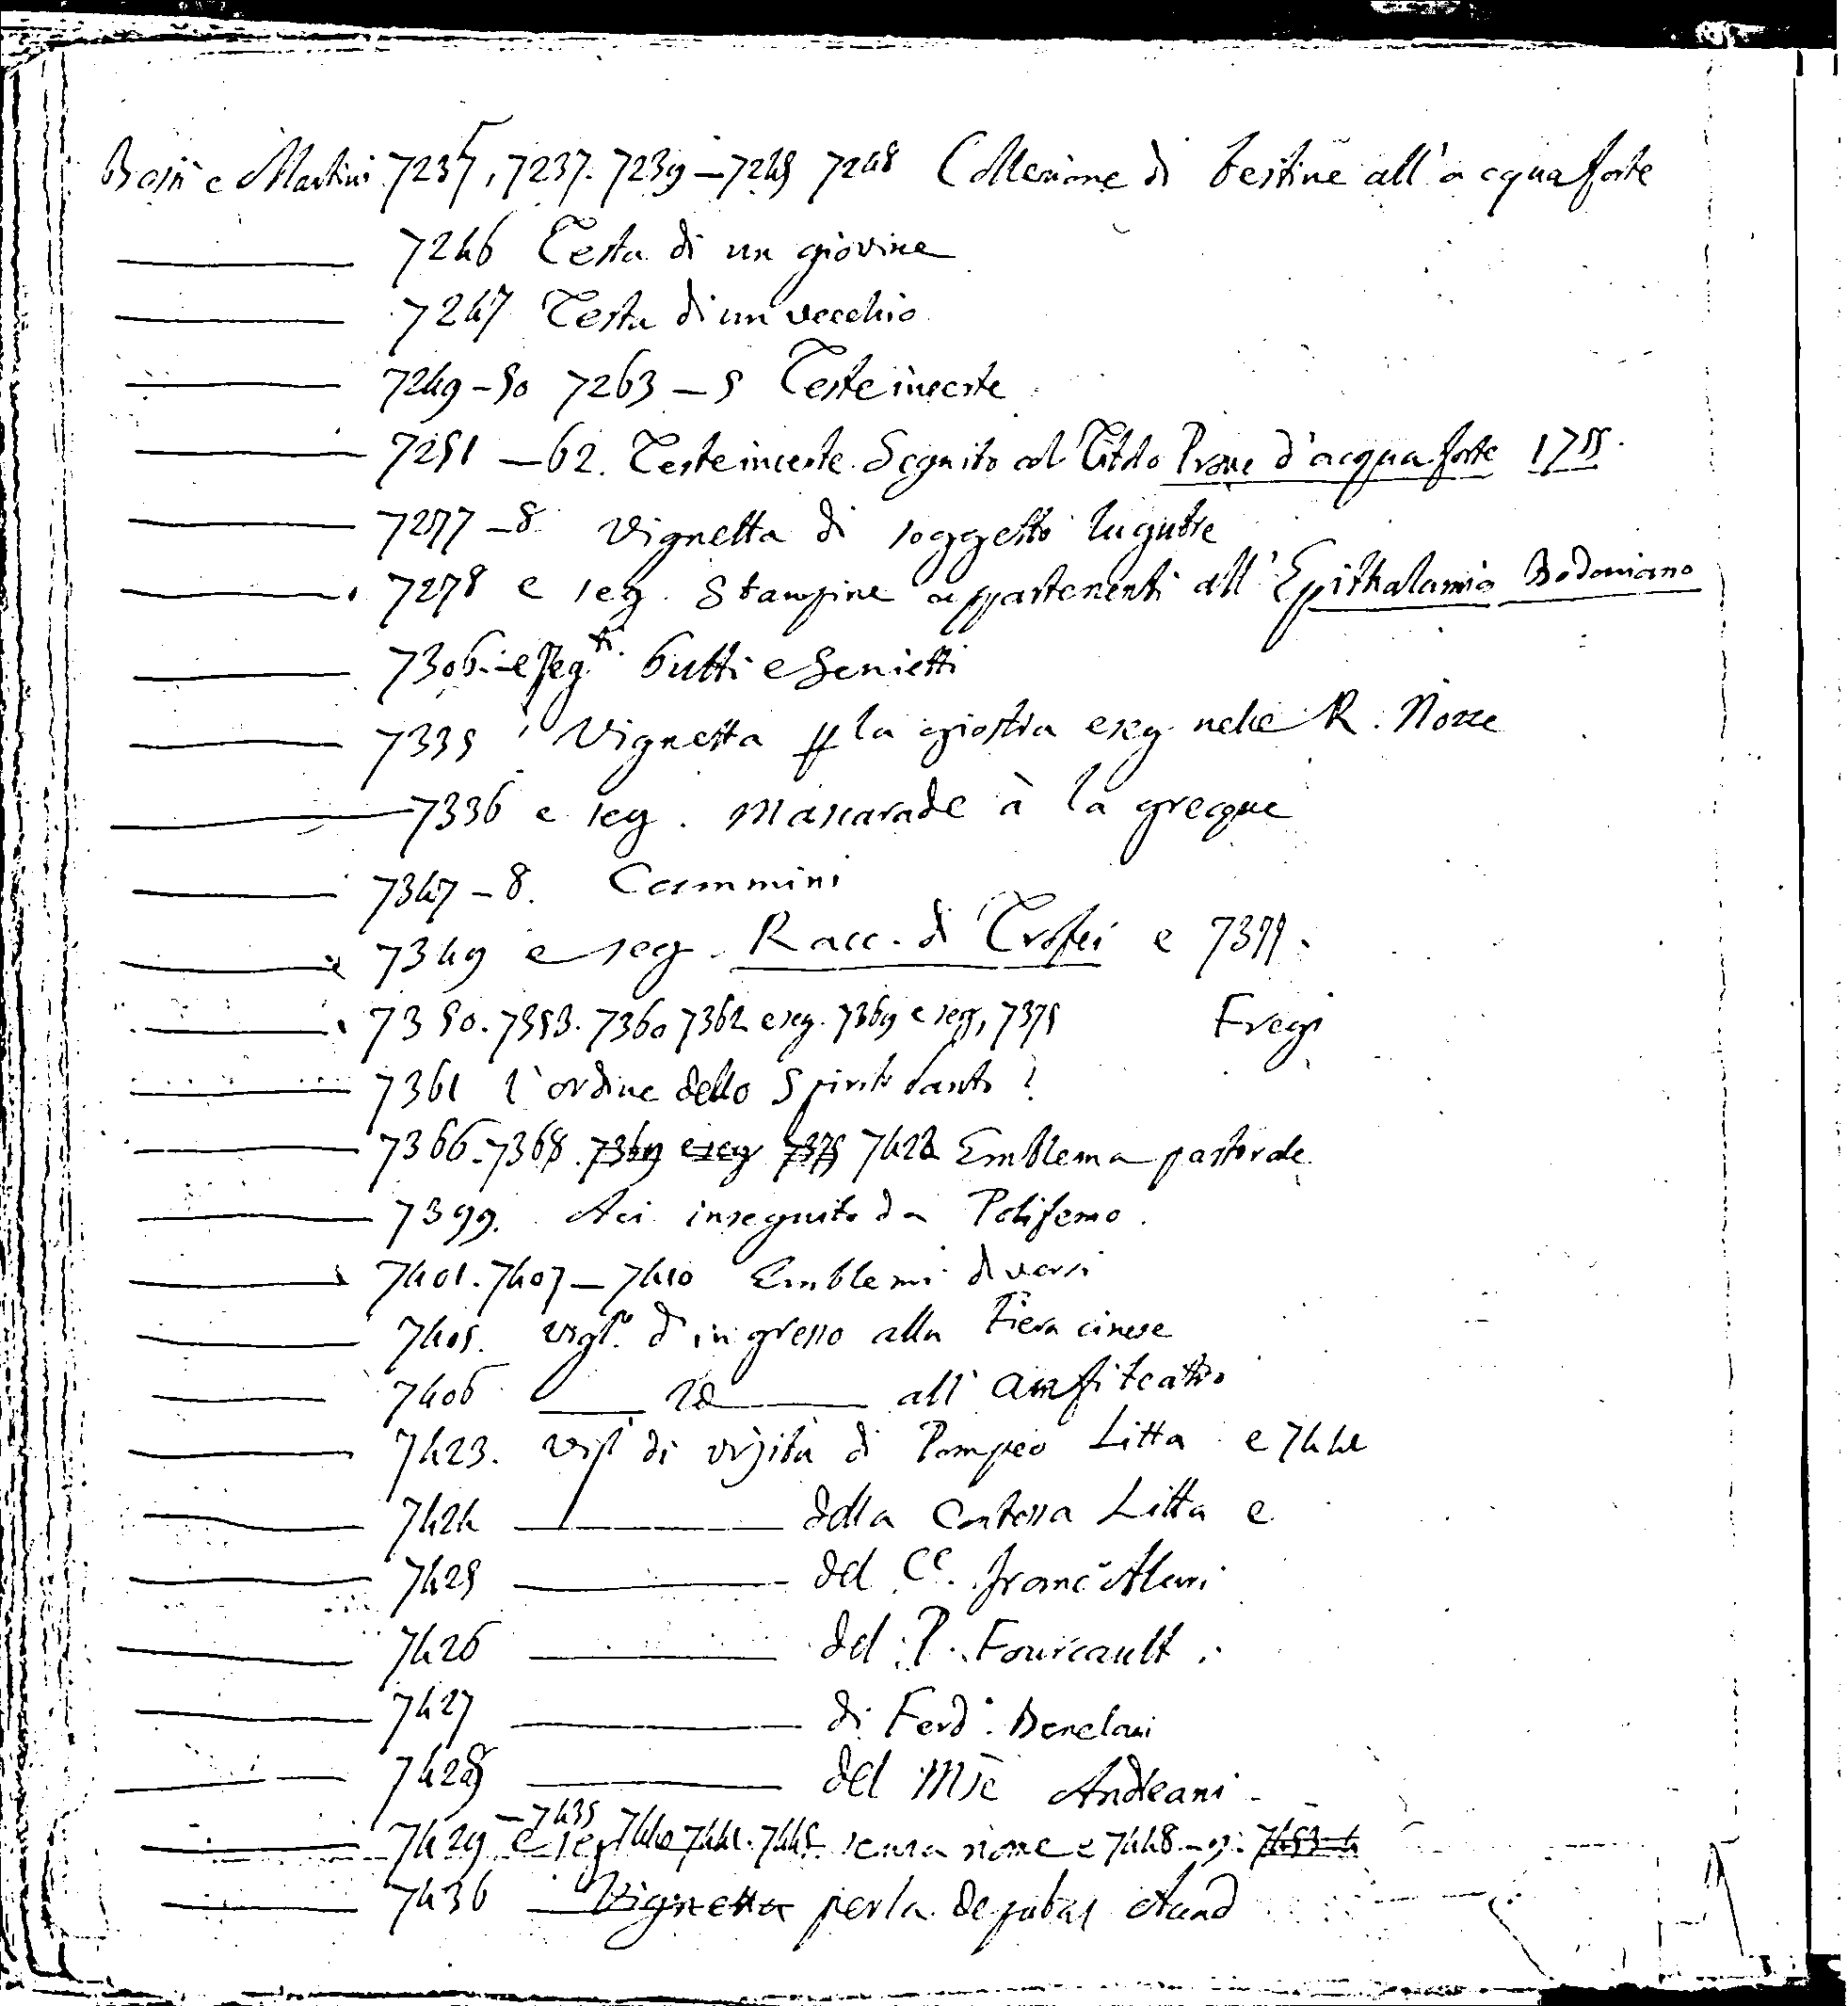 Bossi e Martini 7235, 7237. 7239 – 7245 7248 Collezione di testine all'acquaforte
——— 7246 Testa di un giovine
——— 7247 Testa di un vecchio
——— 7249–50 7263–5 Teste incerte
——— 7251–62. Teste incerte. Seguito col Titolo Prove d'acqua forte 1755.
——— 7277–8 Vignetta di soggetto lugubre
——— 7278 e seg. Stampine appartenenti all'Epithalamio Bodoniano
——— 7306 e seg.ti Putti e Genietti
——— 7335 Vignetta la giostra eseg. nelle R. Nozze
——— 7336 e seg. Mascarade à la grecque
——— 7347–8. Cammini
——— 7349 e seg. Racc. di Trofei e 7377.
——— 7350. 7353. 7360 7362 e seg. 7369 e seg, 7375 Fregi
——— 7361 l'ordine dello Spirito Santo?
——— 7366. 7368. 7369 e seg 7375 7422 Emblema pastorale
——— 7399. Aci inseguito da Polifemo.
——— 7401. 7407 – 7410 Emblemi diversi
——— 7405. vigl.o d'ingresso alla Fiera cinese
——— 7406 —— Id —— all'anfiteatro
——— 7423. vigl di visita di Pompeo Litta e 7441
——— 7424 ——— della Contessa Litta e
——— 7425 ——— del C.e Franc.o
——— 7426 ——— del P. Fourcault.
——— 7427 ——— di Ferd.o
——— 7428 ——— del Mse Andreani
——— 7429 e seg – 7435 7440 7441. 7445 senza nome e 7448 7453–4
——— 7436 — Vignetta per la